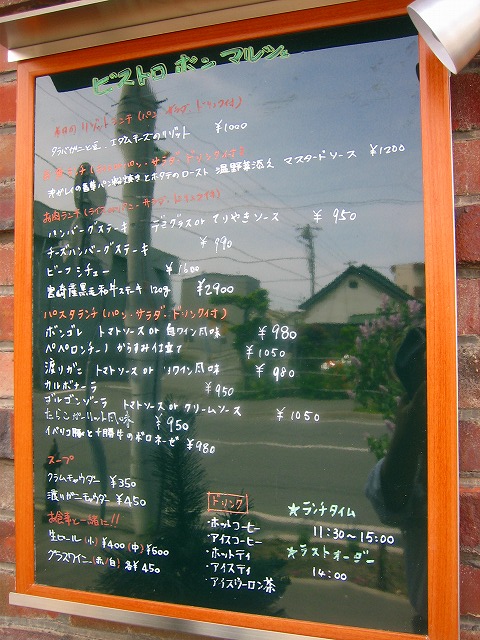 ビストロ ボン マルシェ
本日のリゾットランチ (パン・サラダ・ドリンク付)
タラバガニと豆、エダムチーズのリゾット ¥1000
サラダ・ドリンク付)
沖ガレイの香草パン粉焼きとホタテのロースト 温野菜添え マスタードソース ¥1200
お肉ランチ (ライスorパン・サラダ・ドリンク付)
ハンバーグステーキ デミグラスor てりやきソース ¥950
チーズハンバーグステーキ ¥990
ビーフシチュー ¥1600
宮崎産黒毛和牛ステーキ 120g ¥2900
パスタランチ (パン・サラダ・ドリンク付)
ボンゴレ トマトソース or 白ワイン風味 ¥980
ペペロンチーノ からすみ仕立て ¥1050
渡りガニ トマトソース or 白ワイン風味 ¥980
カルボナーラ ¥950
ゴルゴンゾーラ トマトソース or クリームソース ¥1050
たらこガーリック風味 ¥950
イベリコ豚と十勝牛のボロネーゼ ¥980
スープ
クラムチャウダー ¥350
渡りガニチャウダー ¥450
お食事と一緒に!!
生ビール (小) ¥400 (中) ¥600
グラスワイン (赤/白) 各¥450
ドリンク
・ホットコーヒー
・アイスコーヒー
・ホットティ
・アイスティ
・アイスウーロン茶
★ランチタイム
11:30~15:00
★ラストオーダー
14:00